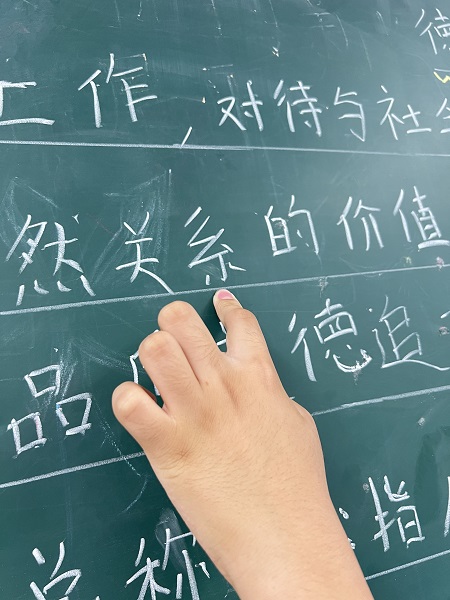 工作,对待与社会
然关系的价值
品 德追
总称 指